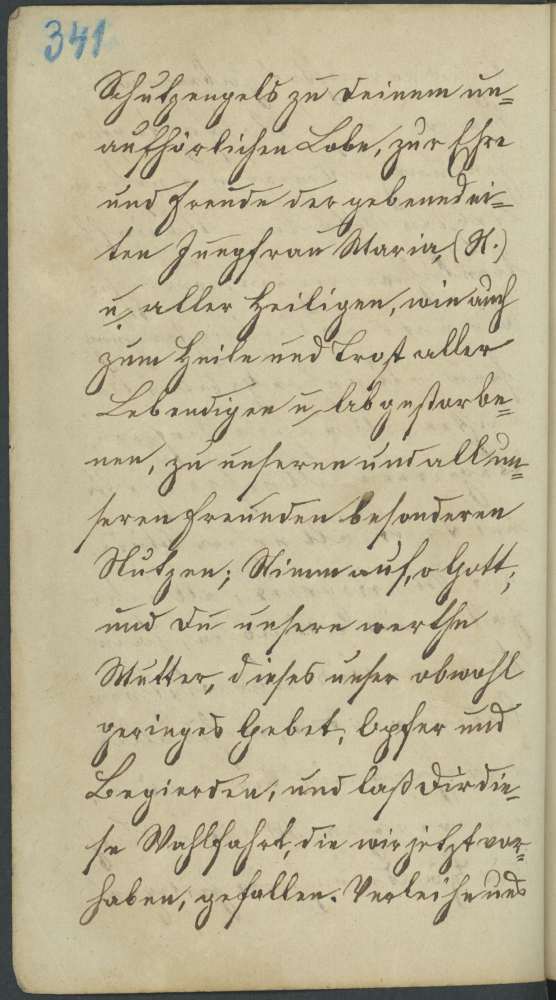 341
Schutzengels zu deinem un=
aufhörlichen Lobe, zur Ehre
und Freude der gebenedei=
ten Jungfrau Maria, (N.)
u. aller Heiligen, wie auch
zum Heile und Trost aller
Lebendigen u. Abgestorbe=
nen, zu unseren und all un=
seren Freunden besonderen
Nutzen; Nimm auf, o Gott,
und du unsere werthe
Mutter, dieses unser obwohl
geringes Gebet, Opfer und
Begierden, und laß dir die=
se Wahlfahrt, die wir jetzt vor=
haben, gefallen. Verleihe uns